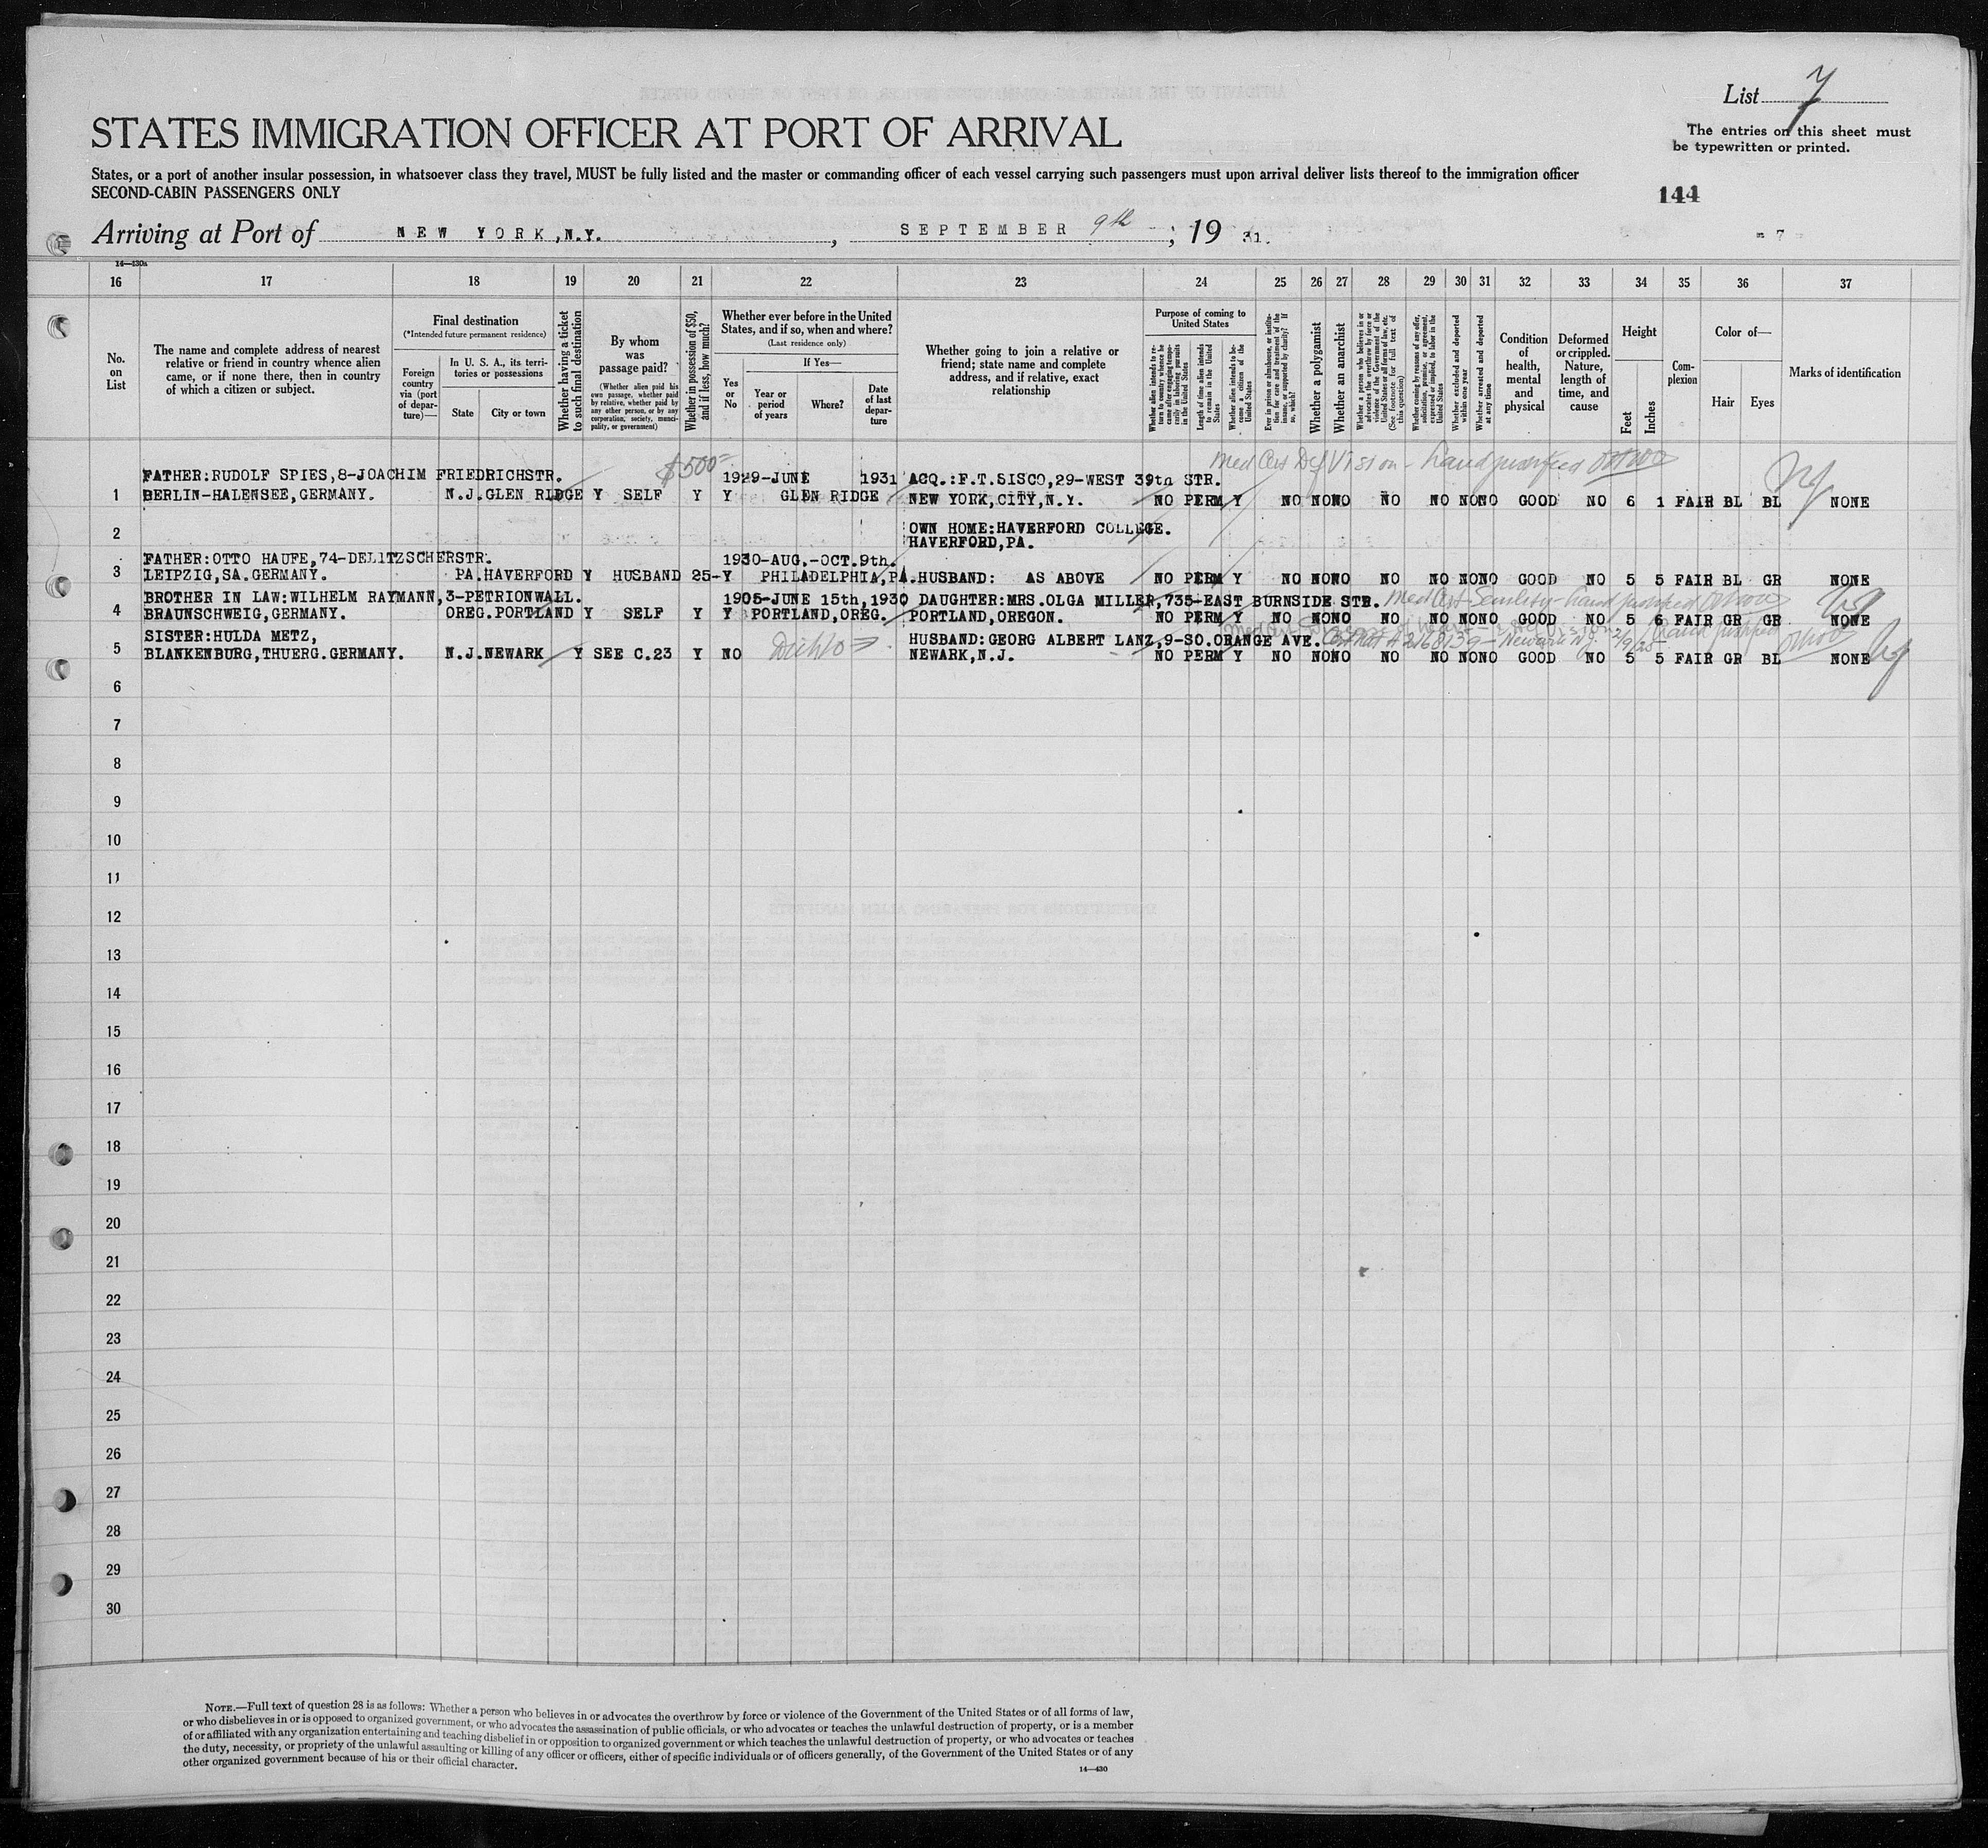 List 7
STATES IMMIGRATION OFFICER AT PORT OF ARRIVAL
The entries on this sheet must
be typewritten or printed.
States, or a port of another insular possession, in whatsoever class they travel, MUST be fully listed and the master or commanding officer of each vessel carrying such passengers must upon arrival deliver lists thereof to the immigration officer
SECOND-CABIN PASSENGERS ONLY
144
Arriving at Port of NEW YORK, N.Y. , SEPTEMBER 9th ; 19 31.
- 7 -
14—430a
16 17 18 19 20 21 22 23 24 25 26 27 28 29 30 31 32 33 34 35 36 37
No.
on
List
The name and complete address of nearest
relative or friend in country whence alien
came, or if none there, then in country
of which a citizen or subject.
Final destination
(*Intended future permanent residence)
Foreign
country
via (port
of depar-
ture)—
In U. S. A., its terri-
tories or possessions
State City or town
Whether having a ticket
to such final destination
By whom
was
passage paid?
(Whether alien paid his
own passage, whether paid
by relative, whether paid by
any other person, or by any
corporation, society, munici-
pality, or government)
Whether in possession of $50,
and if less, how much?
Whether ever before in the United
States, and if so, when and where?
(Last residence only)
Yes
or
No
If Yes—
Year or
period
of years
Where?
Date
of last
depar-
ture
Whether going to join a relative or
friend; state name and complete
address, and if relative, exact
relationship
Purpose of coming to
United States
Whether alien intends to re-
turn to country whence he
came after engaging tempo-
rarily in laboring pursuits
in the United States
Length of time alien intends
to remain in the United
States
Whether alien intends to be-
come a citizen of the
United States
Ever in prison or almshouse, or institu-
tion for care and treatment of the
insane, or supported by charity? If
so, which?
Whether a polygamist
Whether an anarchist
Whether a person who believes in or
advocates the overthrow by force or
violence of the Government of the
United States or all forms of law, etc.
(See footnote for full text of
this question)
Whether coming by reasons of any offer,
solicitation, promise, or agreement,
expressed or implied, to labor in the
United States
Whether excluded and deported
within one year
Whether arrested and deported
at any time
Condition
of
health,
mental
and
physical
Deformed
or crippled.
Nature,
length of
time, and
cause
Height
Feet Inches
Com-
plexion
Color of—
Hair Eyes
Marks of identification
$500
Med Cert Def Vision
FATHER:RUDOLF SPIES,8-JOACHIM FRIEDRICHSTR. 1929-JUNE 1931 ACQ.:F.T.SISCO,29-WEST 39th STR.
1 BERLIN-HALENSEE,GERMANY. N.J.GLEN RIDGE Y SELF Y Y GLEN RIDGE NEW YORK,CITY,N.Y. NO PERM Y NO NO NO NO NO NO NO GOOD NO 6 1 FAIR BL BL NONE
OWN HOME:HAVERFORD COLLEGE.
2 HAVERFORD,PA.
FATHER:OTTO HAUFE,74-DELITZSCHERSTR. 1930-AUG.-OCT.9th.
3 LEIPZIG,SA.GERMANY. PA.HAVERFORD Y HUSBAND 25- Y PHILADELPHIA,PA. HUSBAND: AS ABOVE NO PERM Y NO NO NO NO NO NO NO GOOD NO 5 5 FAIR BL GR NONE
BROTHER IN LAW:WILHELM RAYMANN,3-PETRIONWALL. 1905-JUNE 15th,1930 DAUGHTER:MRS.OLGA MILLER,735-EAST BURNSIDE STR. Med Cert Senility
4 BRAUNSCHWEIG,GERMANY. OREG.PORTLAND Y SELF Y Y PORTLAND,OREG. PORTLAND,OREGON. NO PERM Y NO NO NO NO NO NO NO GOOD NO 5 6 FAIR GR GR NONE
SISTER:HULDA METZ, HUSBAND:GEORG ALBERT LANZ,9-SO.ORANGE AVE.
5 BLANKENBURG,THUERG.GERMANY. N.J.NEWARK Y SEE C.23 Y NO NEWARK,N.J. NO PERM Y NO NO NO NO NO NO NO GOOD NO 5 5 FAIR GR BL NONE
6
7
8
9
10
11
12
13
14
15
16
17
18
19
20
21
22
23
24
25
26
27
28
29
30
NOTE.—Full text of question 28 is as follows: Whether a person who believes in or advocates the overthrow by force or violence of the Government of the United States or of all forms of law,
or who disbelieves in or is opposed to organized government, or who advocates the assassination of public officials, or who advocates or teaches the unlawful destruction of property, or is a member
of or affiliated with any organization entertaining and teaching disbelief in or opposition to organized government or which teaches the unlawful destruction of property, or who advocates or teaches
the duty, necessity, or propriety of the unlawful assaulting or killing of any officer or officers, either of specific individuals or of officers generally, of the Government of the United States or of any
other organized government because of his or their official character.
14—430